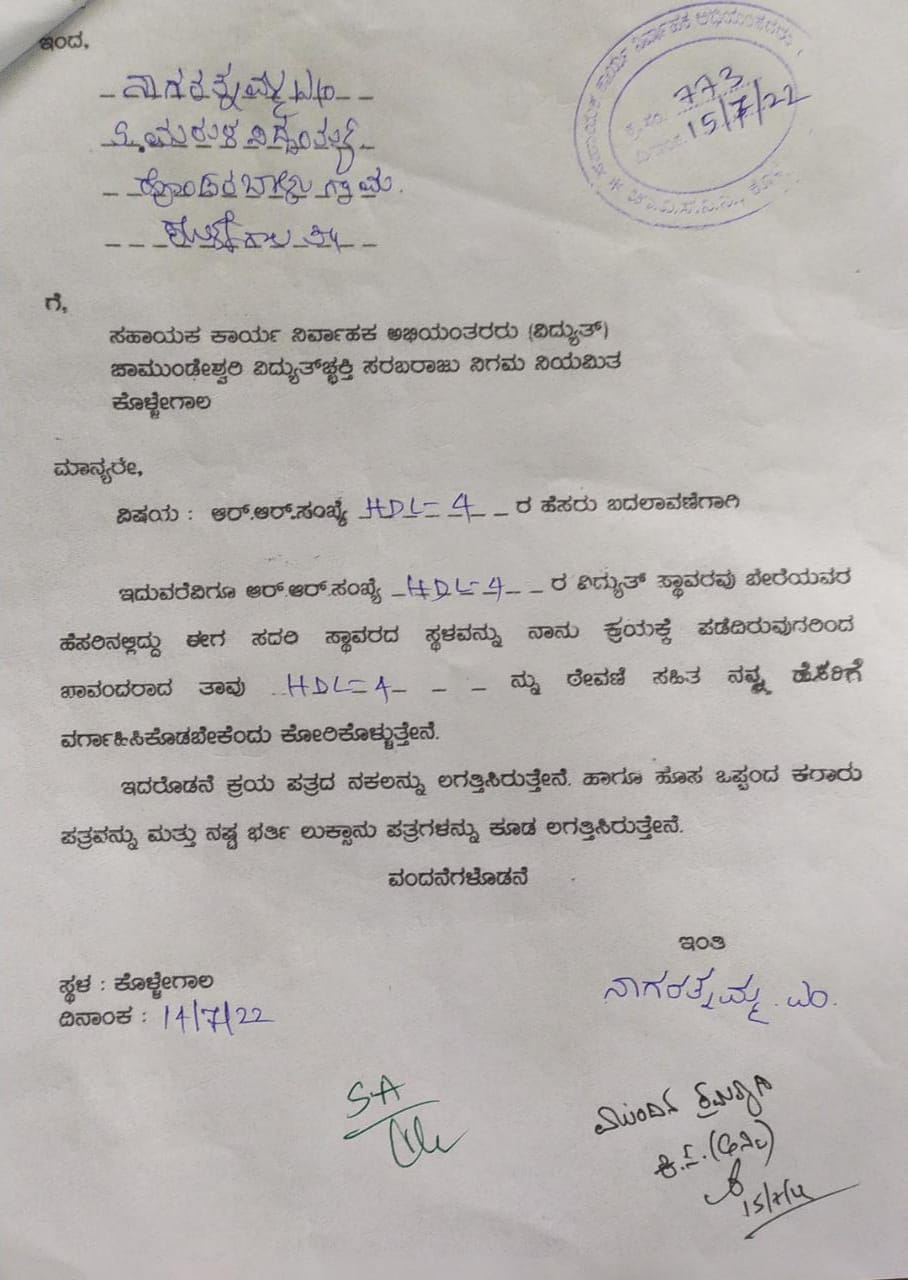 ಇಂದ,
ನಾಗರತ್ನಮ್ಮ ಎಂ
ಗ್ರಾಮ.
ಗೆ,
ಸಹಾಯಕ ಕಾರ್ಯ ನಿರ್ವಾಹಕ ಅಭಿಯಂತರರು (ವಿದ್ಯುತ್)
ಚಾಮುಂಡೇಶ್ವರಿ ವಿದ್ಯುತ್‌ಚ್ಛಕ್ತಿ ಸರಬರಾಜು ನಿಗಮ ನಿಯಮಿತ
ಕೊಳ್ಳೇಗಾಲ
ಮಾನ್ಯರೇ,
ವಿಷಯ : ಆರ್.ಆರ್.ಸಂಖ್ಯೆ HDL=4 ರ ಹೆಸರು ಬದಲಾವಣೆಗಾಗಿ
ಇದುವರೆವಿಗೂ ಆರ್.ಆರ್.ಸಂಖ್ಯೆ HDL=4 ರ ವಿದ್ಯುತ್ ಸ್ಥಾವರವು ಬೇರೆಯವರ
ಹೆಸರಿನಲ್ಲಿದ್ದು ಈಗ ಸದರಿ ಸ್ಥಾವರದ ಸ್ಥಳವನ್ನು ನಾನು ಕ್ರಯಕ್ಕೆ ಪಡೆದಿರುವುದರಿಂದ
ಖಾವಂದರಾದ ತಾವು HDL=4 ನ್ನು ಠೇವಣಿ ಸಹಿತ ನನ್ನ ಹೆಸರಿಗೆ
ವರ್ಗಾಹಿಸಿಕೊಡಬೇಕೆಂದು ಕೋರಿಕೊಳ್ಳುತ್ತೇನೆ.
ಇದರೊಡನೆ ಕ್ರಯ ಪತ್ರದ ನಕಲನ್ನು ಲಗತ್ತಿಸಿರುತ್ತೇನೆ. ಹಾಗೂ ಹೊಸ ಒಪ್ಪಂದ ಕರಾರು
ಪತ್ರವನ್ನು ಮತ್ತು ನಷ್ಟ ಭರ್ತಿ ಲುಕ್ಸಾನು ಪತ್ರಗಳನ್ನು ಕೂಡ ಲಗತ್ತಿಸಿರುತ್ತೇನೆ.
ವಂದನೆಗಳೊಡನೆ
ಇಂತಿ
ನಾಗರತ್ನಮ್ಮ .ಎಂ.
ಸ್ಥಳ : ಕೊಳ್ಳೇಗಾಲ
ದಿನಾಂಕ : 14/7/22
ಸಹಾಯಕ ಕಾರ್ಯ ನಿರ್ವಾಹಕ ಅಭಿಯಂತರರು
ಕ್ರ.ಸಂ. 773
ದಿನಾಂಕ 15/7/22
ಚಾ.ವಿ.ಸ.ನಿ.ನಿ.,
SA
ಮುಂದಿನ
15/7/22